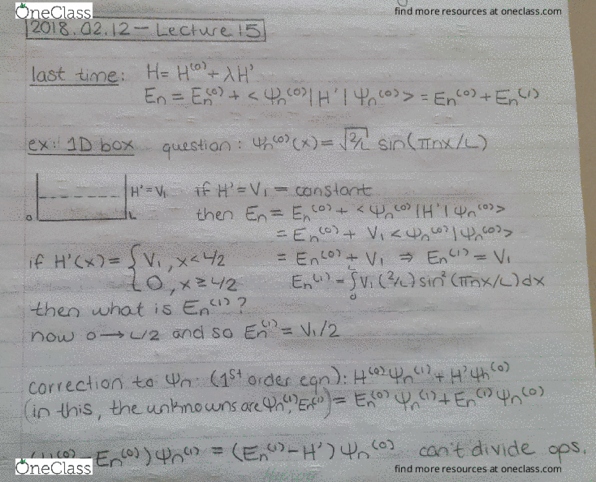 OneClass
find more resources at oneclass.com
2018.02.12 - Lecture 15
last time: H = H⁽⁰⁾ + λH'
En = En⁽⁰⁾ + <Ψn⁽⁰⁾|H'|Ψn⁽⁰⁾> = En⁽⁰⁾ + En⁽¹⁾
ex: 1D box question: Ψn⁽⁰⁾(x) = √2/L sin(πnx/L)
H' = V₁ if H' = V₁ = constant
0 L then En = En⁽⁰⁾ + <Ψn⁽⁰⁾|H'|Ψn⁽⁰⁾>
= En⁽⁰⁾ + V₁ <Ψn⁽⁰⁾|Ψn⁽⁰⁾>
if H'(x) = { V₁, x < L/2 = En⁽⁰⁾ + V₁ ⇒ En⁽¹⁾ = V₁
0, x ≥ L/2 En⁽¹⁾ = ∫₀ᴸ V₁ (2/L) sin²(πnx/L) dx
then what is En⁽¹⁾?
now 0 → L/2 and so En⁽¹⁾ = V₁/2
correction to Ψn (1st order eqn): H⁽⁰⁾Ψn⁽¹⁾ + H'Ψn⁽⁰⁾
(in this, the unknowns are Ψn⁽¹⁾, En⁽¹⁾) = En⁽⁰⁾Ψn⁽¹⁾ + En⁽¹⁾Ψn⁽⁰⁾
- En⁽⁰⁾)Ψn⁽¹⁾ = (En⁽¹⁾ - H')Ψn⁽⁰⁾ can't divide ops.
OneClass
find more resources at oneclass.com